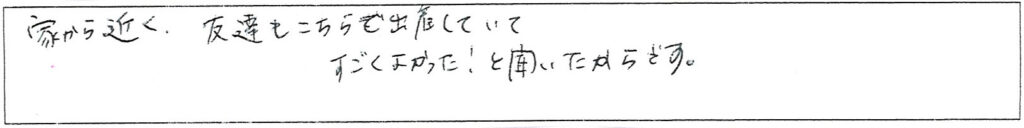 家から近く、友達もこちらで出産していて
すごくよかった！と聞いたからです。